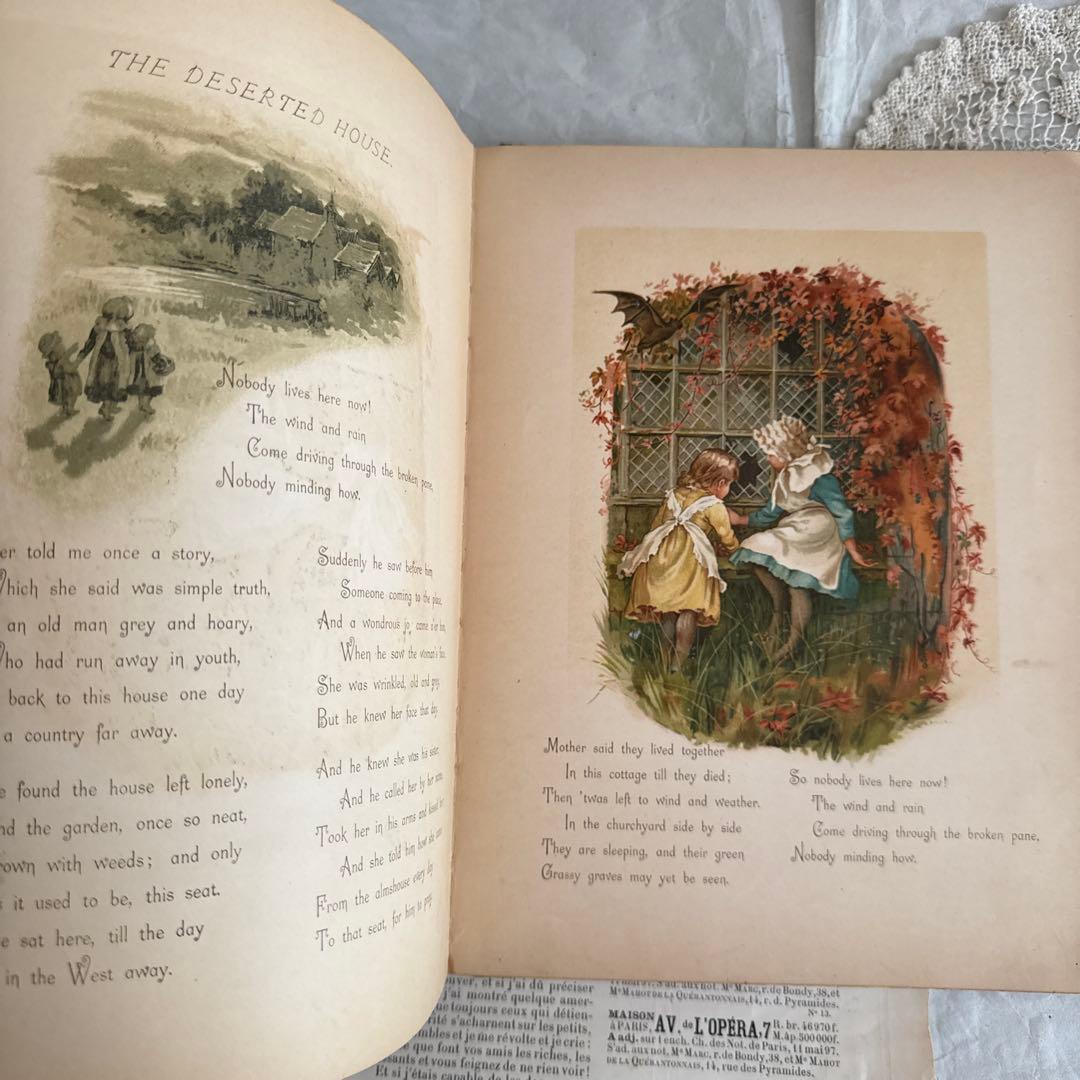 THE DESERTED HOUSE.
Nobody lives here now!
The wind and rain
Come driving through the broken pane,
Nobody minding how.
er told me once a story,
Which she said was simple truth,
an old man grey and hoary,
Who had run away in youth,
back to this house one day
a country far away.
e found the house left lonely,
nd the garden, once so neat,
rown with weeds; and only
s it used to be, this seat.
e sat here, till the day
in the West away.
Suddenly he saw before him
Someone coming to the place,
And a wondrous joy came o'er him,
When he saw the woman's face.
She was wrinkled, old and grey,
But he knew her face that day.
And he knew she was his sister
And he called her by her name,
Took her in his arms and kissed her
And she told him how she came
From the almshouse every day
To that seat, for him to pray.
Mother said they lived together
In this cottage till they died;
Then 'twas left to wind and weather.
In the churchyard side by side
They are sleeping, and their green
Grassy graves may yet be seen.
So nobody lives here now!
The wind and rain
Come driving through the broken pane,
Nobody minding how.
uver, et si j'ai dû préciser
j'ai montré quelque amer-
que toujours ceux qui détien-
rité s'acharnent sur les petits,
mbles et je me révolte et je crie:
ce que font vos amis les riches, les
sants et vous feignez de ne rien voir!
Et si j'étais capable de
Me MARC, r. de Bondy, 38, et
Me MAHOT DE LA QUÉRANTONNAIS, 14, r. d. Pyramides.
N° 13.
MAISON à PARIS, AV. de L'OPÉRA, 7 R. br. 46970f. M. àp. 500000f.
A adj. sur 1 ench. Ch. des Not. de Paris, 11 mai 97.
S'ad. aux not. Me MARC, r. de Bondy, 38, et Me MAHOT
DE LA QUÉRANTONNAIS, 14, rue des Pyramides.